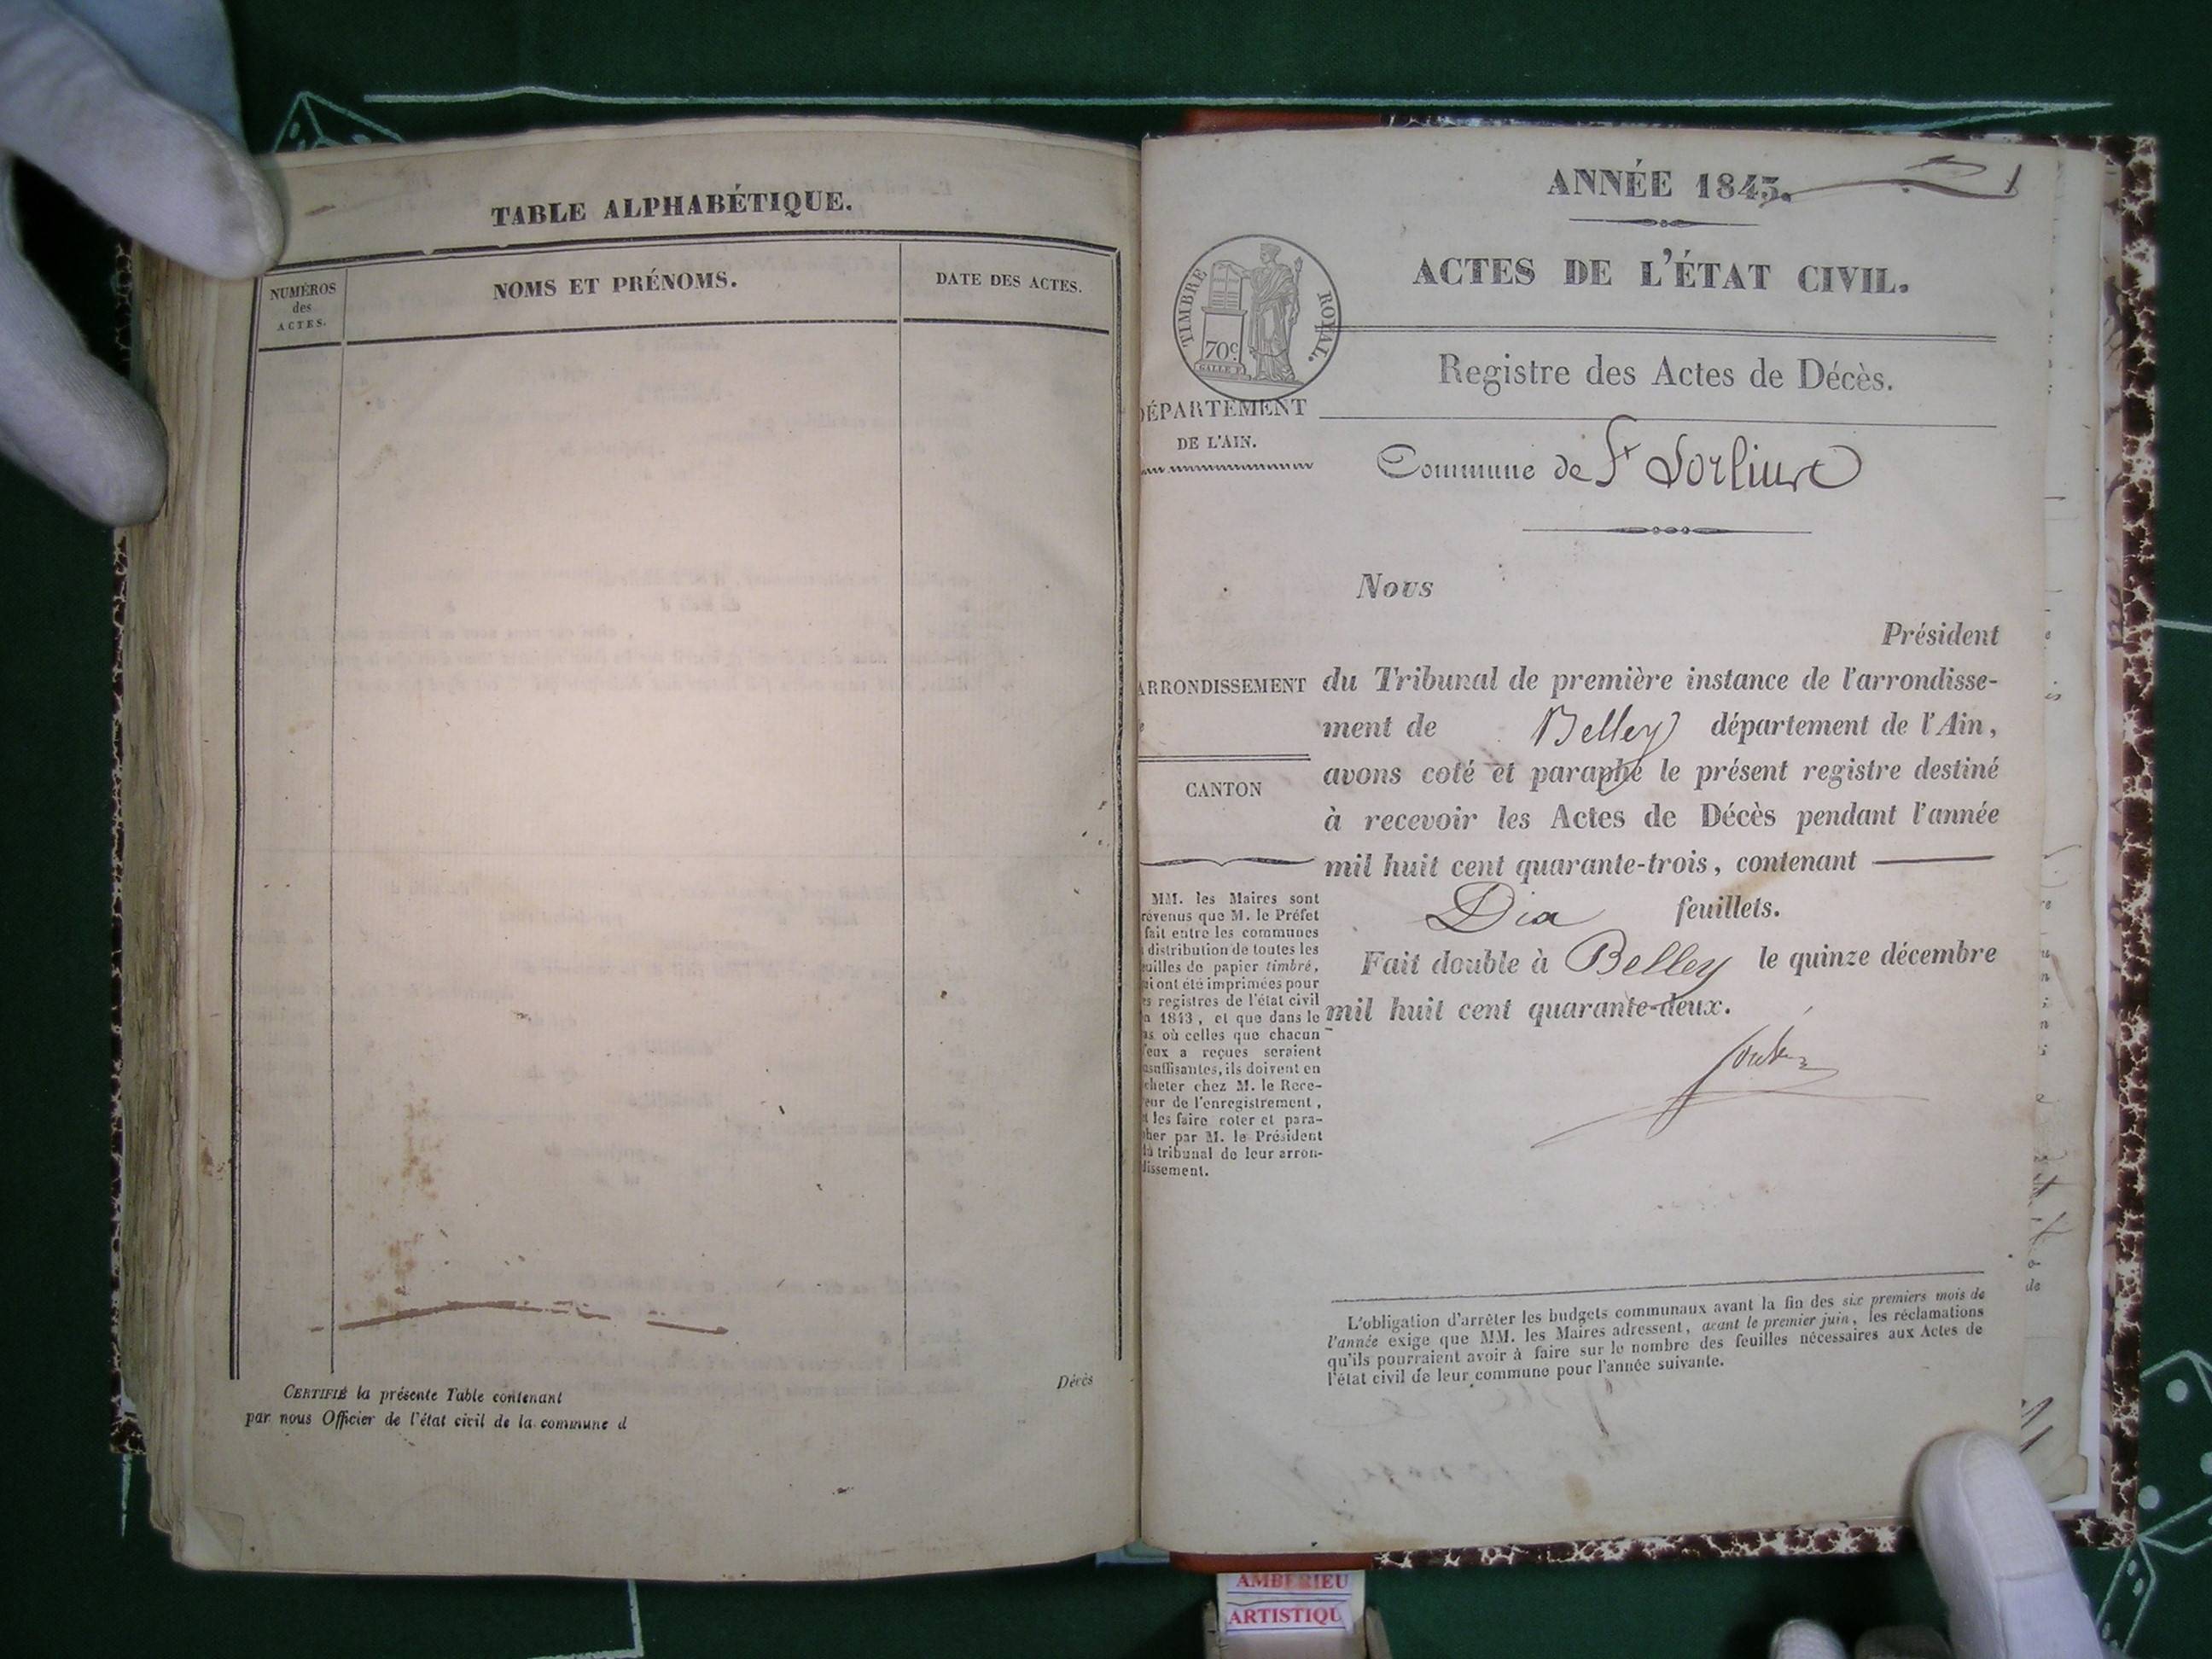 TABLE ALPHABÉTIQUE.
NUMÉROS
des
ACTES.
NOMS ET PRÉNOMS.
DATE DES ACTES.
CERTIFIÉ la présente Table contenant
par nous Officier de l'état civil de la commune d
Décès
ANNÉE 1843.
1
ACTES DE L'ÉTAT CIVIL.
TIMBRE ROYAL.
70c
Registre des Actes de Décès.
DÉPARTEMENT
DE L'AIN.
Commune de St Sorlin
Nous
Président
ARRONDISSEMENT
du Tribunal de première instance de l'arrondisse-
ment de Belley département de l'Ain,
avons coté et paraphé le présent registre destiné
CANTON
à recevoir les Actes de Décès pendant l'année
mil huit cent quarante-trois, contenant
Dix feuillets.
Fait double à Belley le quinze décembre
mil huit cent quarante-deux.
MM. les Maires sont
révenus que M. le Préfet
fait entre les communes
distribution de toutes les
uilles de papier timbré,
i ont été imprimées pour
s registres de l'état civil
n 1843, et que dans le
as où celles que chacun
'eux a reçues seraient
nsuffisantes, ils doivent en
cheter chez M. le Rece-
eur de l'enregistrement,
t les faire coter et para-
her par M. le Président
u tribunal de leur arron-
dissement.
L'obligation d'arrêter les budgets communaux avant la fin des six premiers mois de
l'année exige que MM. les Maires adressent, avant le premier juin, les réclamations
qu'ils pourraient avoir à faire sur le nombre des feuilles nécessaires aux Actes de
l'état civil de leur commune pour l'année suivante.
AMBERIEU
ARTISTIQU